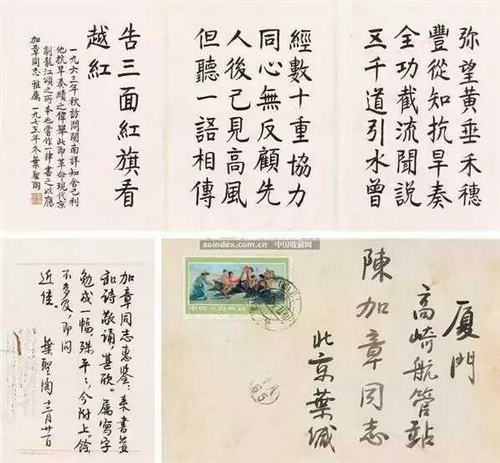 弥望黄垂禾穗
豐從知抗旱奏
全功截流聞說
五千道引水曾
經數十重協力
同心無反顧先
人後己見高風
但聽一語相傳
告三面紅旗看
越紅
一九六三年秋訪問閩南詳知舍己利
他抗旱奏績之偉舉此即革命現代京
劇龍江頌之所本也嘗作一律書之以應
加章同志雅屬 一九七五年冬 葉聖陶
soindex.com.cn 中国收藏网
加章同志惠鑒：来書並
和诗敬诵甚歡。属寫字
勉成一幅殊平平，今附上。餘
不多及，即問
近佳。
葉聖陶 十二月廿
厦門
高崎航管站
陳加章同志
北京葉緘